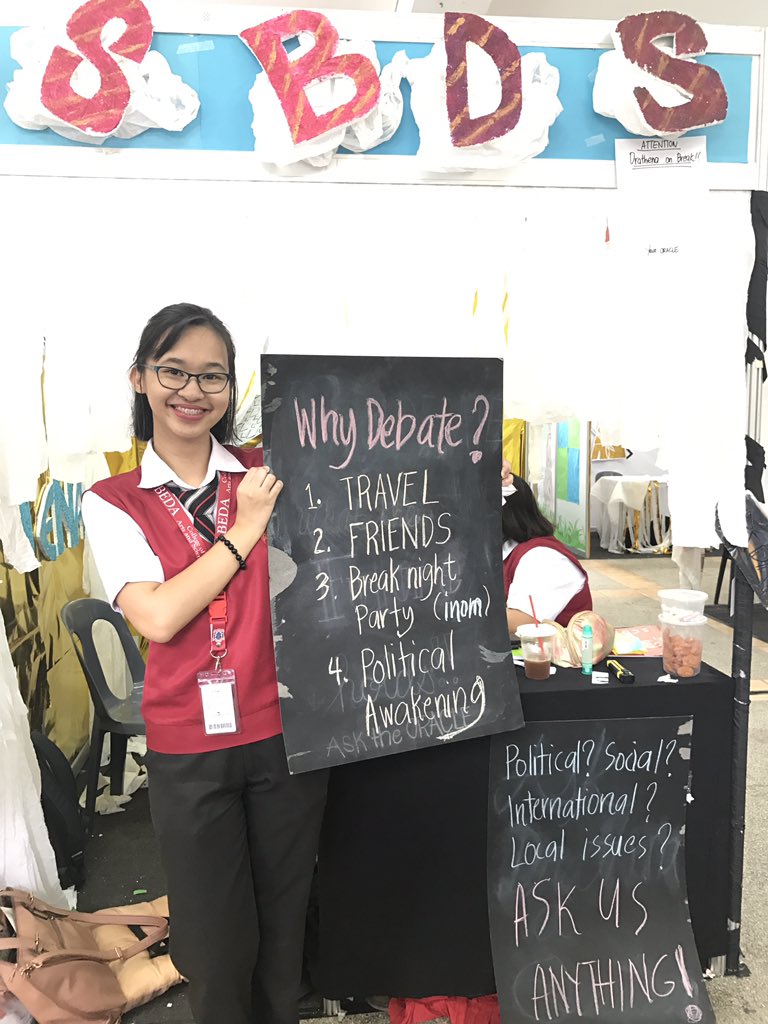 SBDS
ATTENTION
Drathena on Break!!
ORACLE
BEDA
College
BEDA
Why Debate?
1. TRAVEL
2. FRIENDS
3. Break night
Party (inom)
4. Political
Awakening
ASK the ORACLE
Political? Social?
International?
Local issues?
ASK US
ANYTHING!